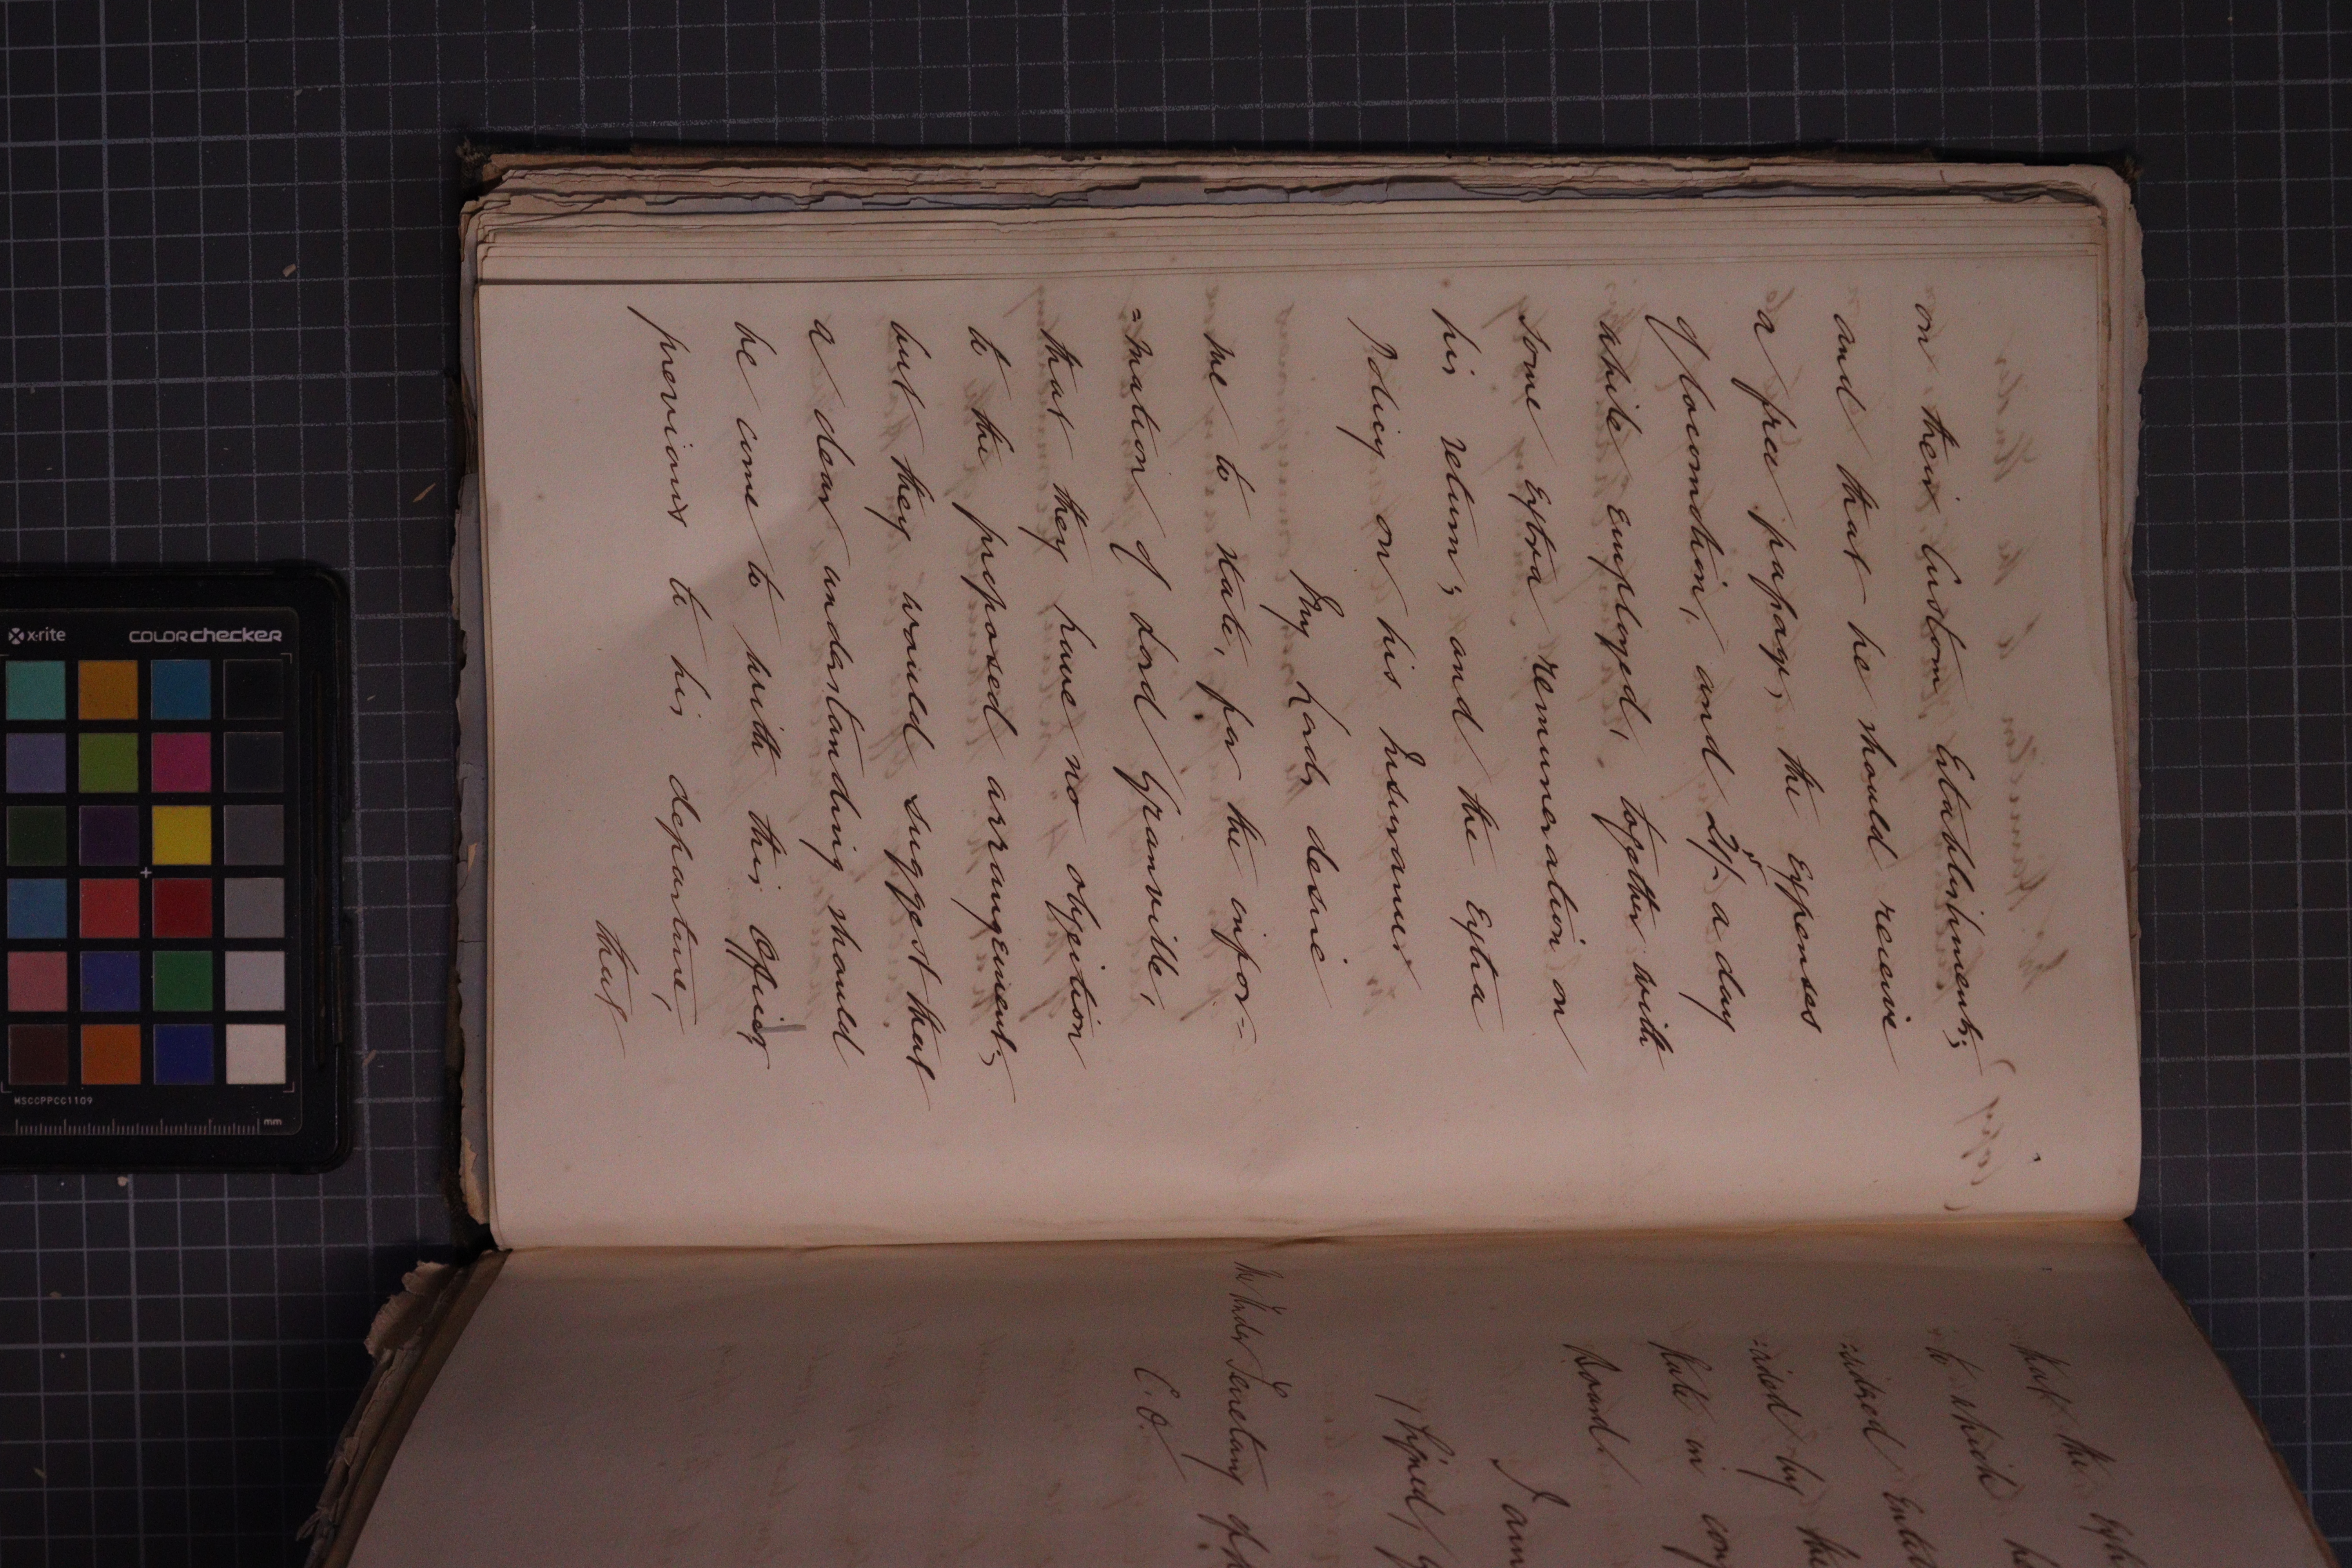 on their Custom Establishment;
and that he should receive
a free passage, the Expenses
of locomotion, and 21/- a day
while employed, together with
some Extra remuneration on
his return; and the Extra
Policy on his Insurance
My Lords desire
me to state, for the infor=
=mation of Lord Granville,
that they have no objection
to the proposed arrangement;
but they would suggest that
a clear understanding should
be come to with this Officer
previous to his departure,
that
that the Ext
to which h
the
in
Board
I am
(Signed)
The Under Secretary of
C. O.
x-rite
colorchecker
MSCCPPCC1109
mm